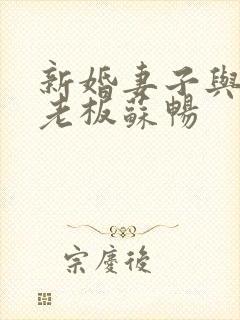 新婚妻子與
老板蘇暢
宗慶後